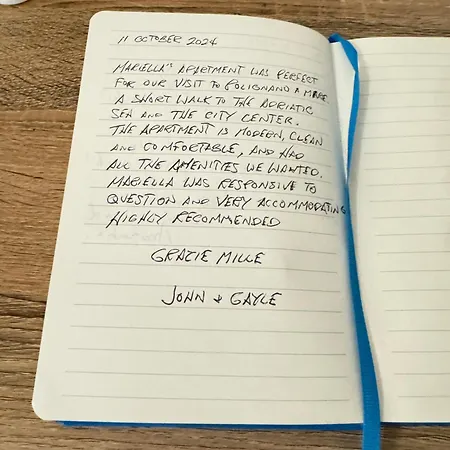 11 OCTOBER 2024
MARIELLA'S APARTMENT WAS PERFECT
FOR OUR VISIT TO POLIGNANO A MARE
A SHORT WALK TO THE ADRIATIC
SEA AND THE CITY CENTER.
THE APARTMENT IS MODERN, CLEAN
AND COMFORTABLE, AND HAD
ALL THE AMENITIES WE WANTED.
MARIELLA WAS RESPONSIVE TO
QUESTION AND VERY ACCOMMODATING
HIGHLY RECOMMENDED
GRAZIE MILLE
JOHN & GAYLE